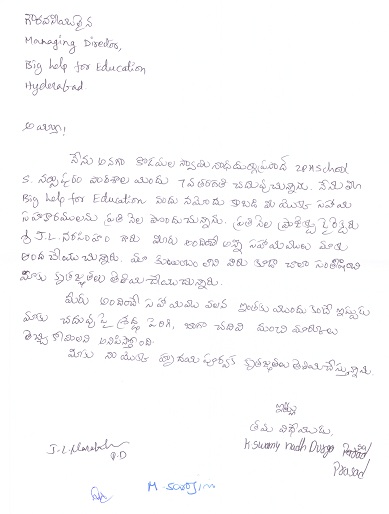 గౌరవనీయులైన
Managing Director,
Big help for Education
Hyderabad.
అయ్యా!
నేను అనగా స్వామినాధదుర్గాప్రసాద్ ZPHSchool
S. పాఠశాల యందు 7వ తరగతి చదువుచున్నాను. నేను
Big help for Education నందు నమోదు కాబడి మీ యొక్క సహాయ
సహకారములను ప్రతి నెల పొందుచున్నాను. ప్రతి నెల ప్రాజెక్టు డైరెక్టరు
శ్రీ J.L. నరసింహం గారు మీరు అందించే అన్ని సహాయములు మాకు
అంద చేయుచున్నారు. మా కుటుంబం వారు కూడా చాలా సంతోషించి
మీకు కృతజ్ఞతలు తెలియచేయుచున్నారు.
మీరు అందించే సహాయము వలన ఇంతకు ముందు కంటే ఇప్పుడు
మాకు చదువు పై శ్రద్ధ పెరిగి, బాగా చదివి మంచి మార్కులు
తెచ్చుకోవాలని అనిపిస్తోంది.
మీకు నా యొక్క హృదయ పూర్వక కృతజ్ఞతలు తెలియచేస్తున్నాను
ఇట్లు
తమ విధేయుడు,
K swamy nadh Durga
Prasad
J-L-
P.D
M